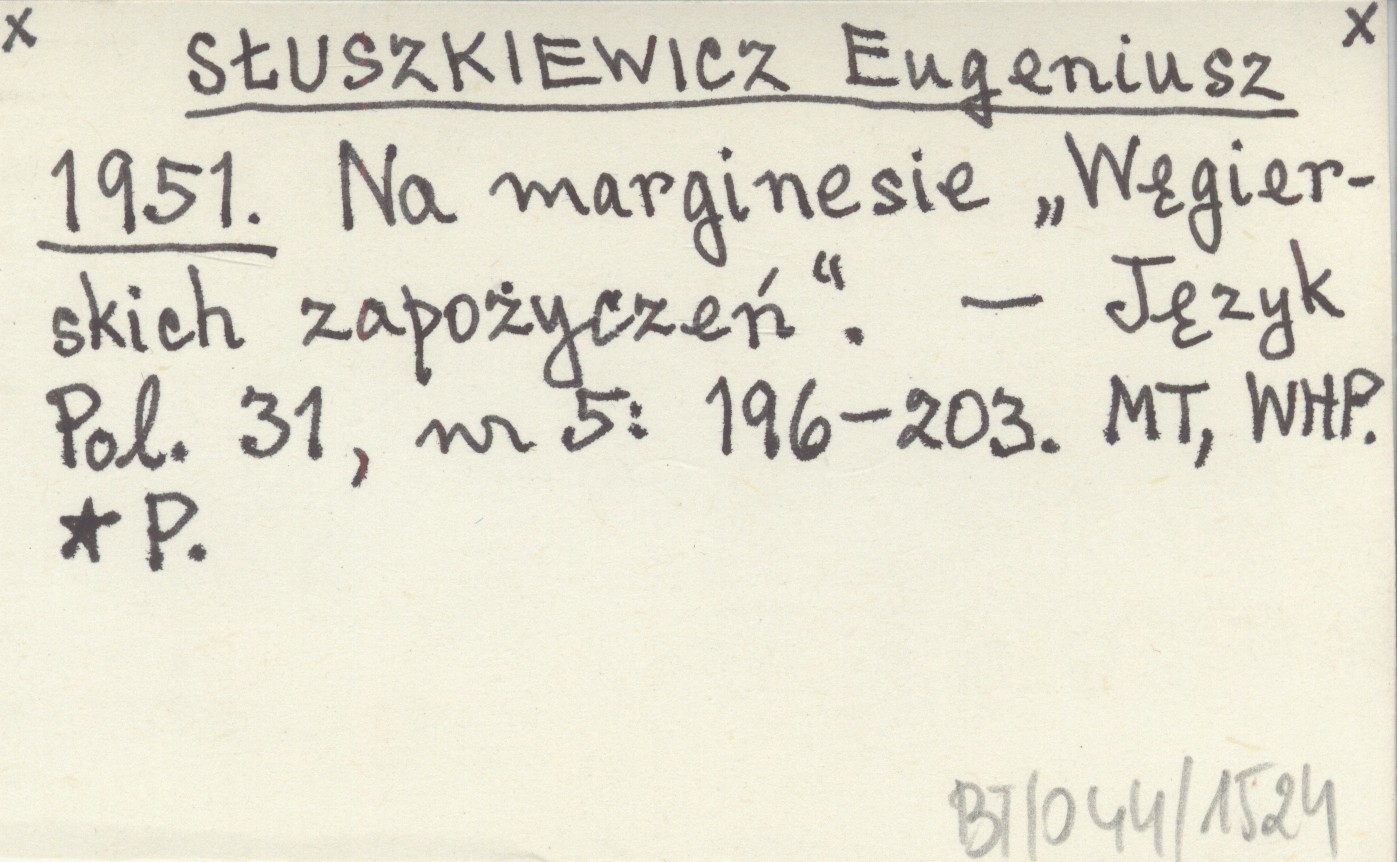 x SŁUSZKIEWICZ Eugeniusz x
1951. Na marginesie „Węgier-
skich zapożyczeń“. — Język
Pol. 31, nr 5: 196–203. MT, WHP.
★ P.
BT/044/1524